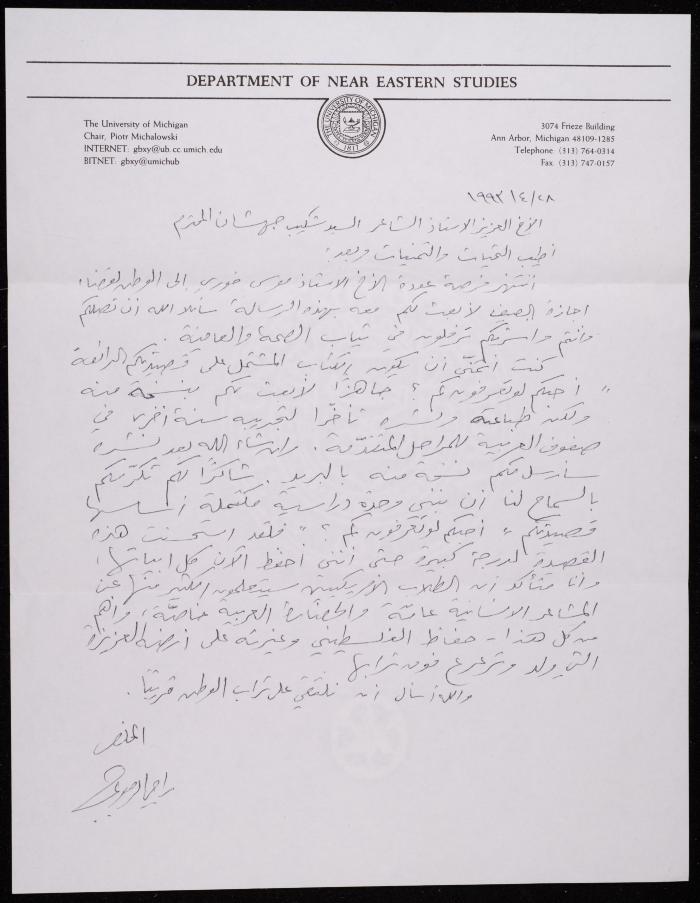 DEPARTMENT OF NEAR EASTERN STUDIES
The University of Michigan
Chair, Piotr Michalowski
INTERNET: gbxy@ub.cc.umich.edu
BITNET: gbxy@umichub
THE UNIVERSITY OF MICHIGAN
1817
3074 Frieze Building
Ann Arbor, Michigan 48109-1285
Telephone (313) 764-0314
Fax (313) 747-0157
١٩٩٣/٤/٢٨
الأخ العزيز الاستاذ الشاعر السيد شكيب جهشان المحترم
أطيب التحيات والتمنيات وبعد:
أنتهز فرصة عودة الأخ الاستاذ موسى خوري إلى الوطن لقضاء
اجازة الصيف لأبعث لكم معه بهذه الرسالة سائلا الله ان تصلكم
وانتم واسرتكم ترفلون في ثياب الصحة والعافية.
كنت أتمنّى أن يكون الكتاب المشتمل على قصيدتكم الرائعة
"أحبكم لو تعرفون كم؟" جاهزًا لأبعث لكم بنسخة منه
ولكن طباعته ونشره تأخّرا لتجريبه سنة أخرى في
صفوف العربية للمراحل المتقدّمة. وان شاء الله بعد نشره
سأرسل لكم نسخة منه بالبريد. شاكرًا لكم تكرّمكم
بالسماح لنا أن نبني وحدة دراسية مكتملة أساسها
قصيدتكم "أحبكم لو تعرفون كم؟" فلقد استحسنت هذه
القصيدة لدرجة كبيرة حتى أنني أحفظ الآن كل ابياتها،
وأنا متأكد أن الطلاب الأمريكيين سيتعلمون الكثير منها عن
المشاعر الانسانية عامّة والحضارة العربية خاصّة، وأهم
من كل هذا - حفاظ الفلسطيني وغيرته على أرضه العزيزة
التي ولد وترعرع فوق ترابها
والله أسأل أن نلتقي على تراب الوطن قريبًا.
المخلص